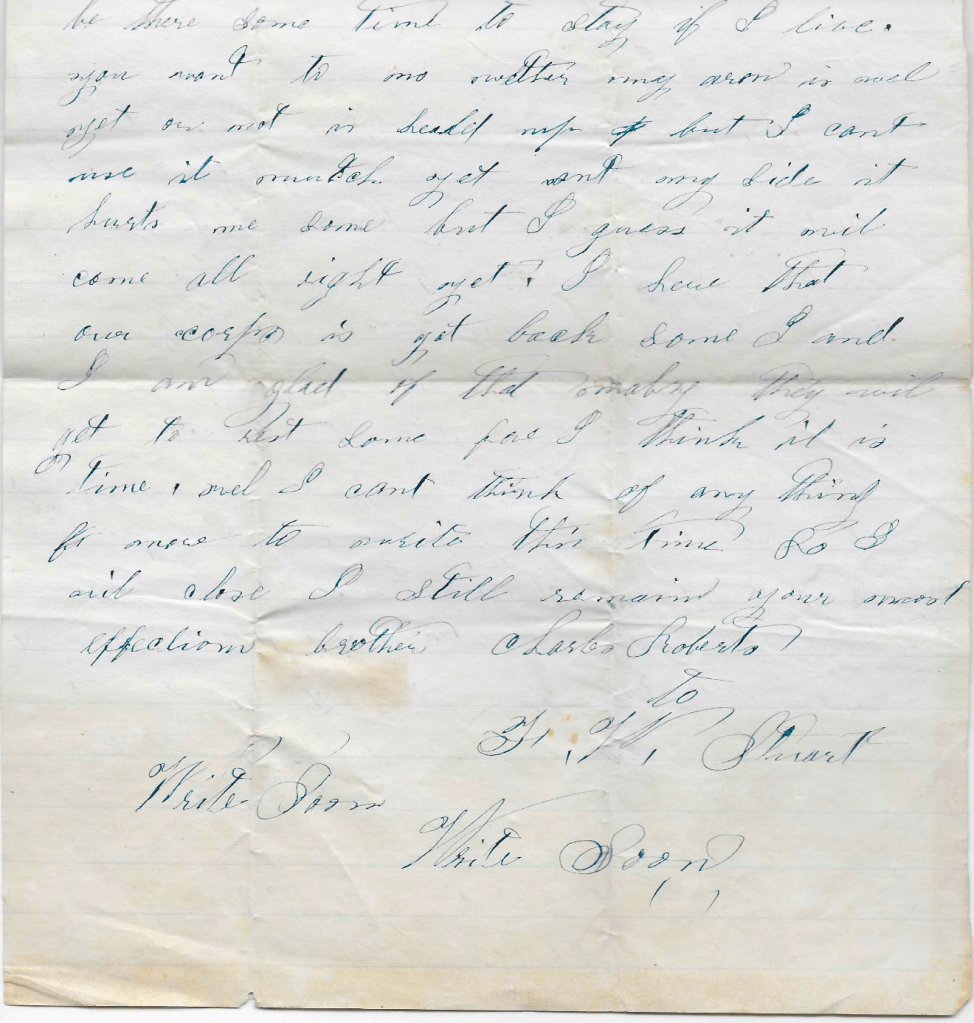 be there some time to stay if I live.
you want to no wether my arm is wel
yet or not is heald up but I cant
use it mutch yet ant my side it
hurts me some but I guess it wil
come all right yet. I hear that
our corps is got back some I and
I am glad of that maby they wil
get to rest some for I think it is
time. wel I cant think of any thing
more to write this time So I
wil close I still remain your most
effectiom brother Charles Roberts
to
Stuart
Write Soon
Write Soon